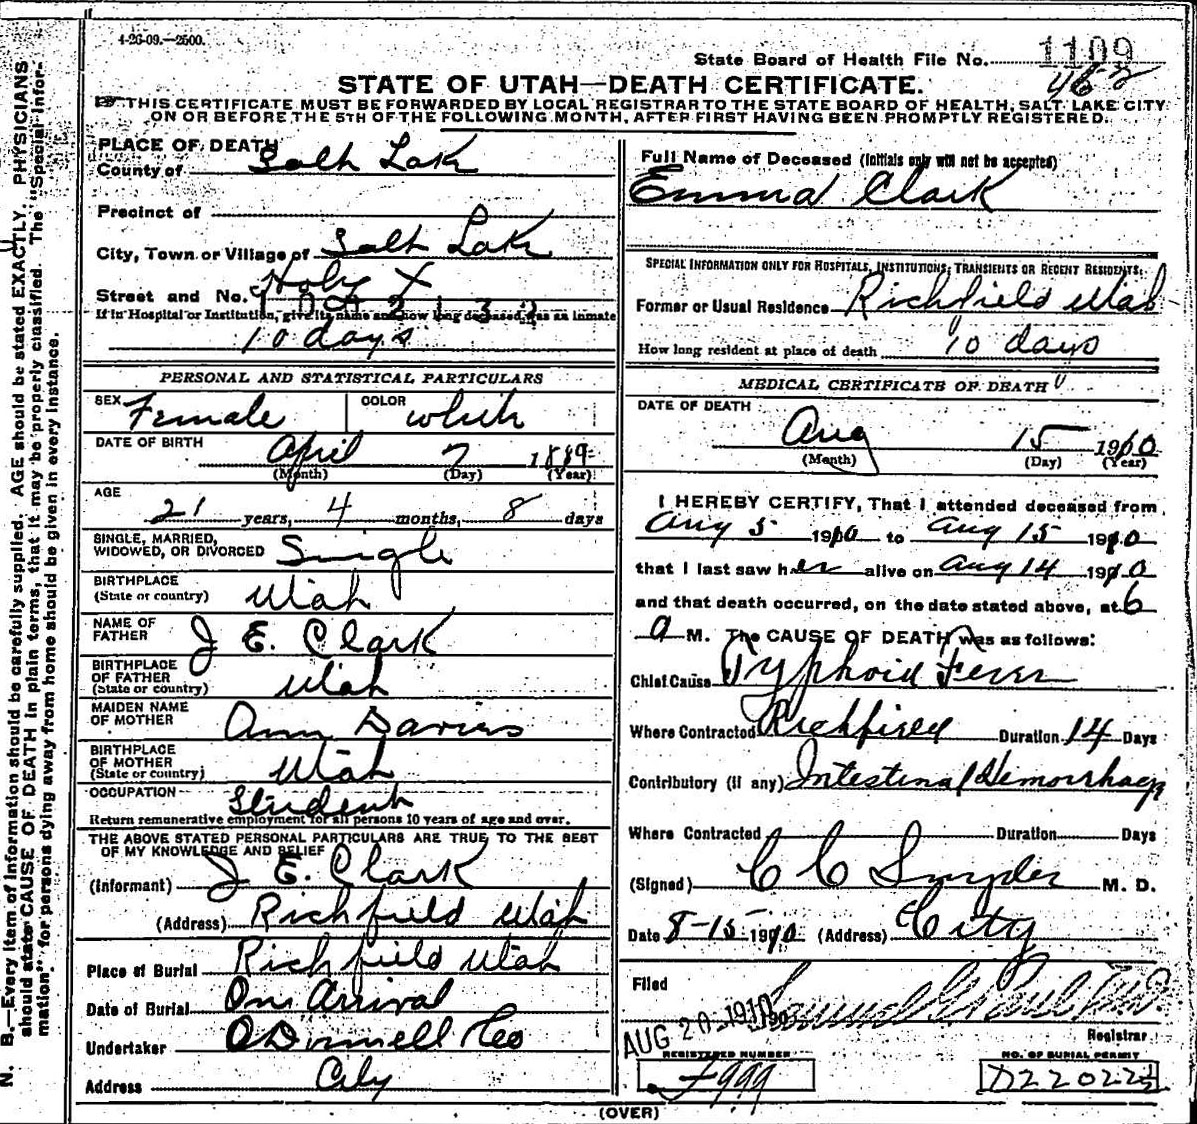 4-26-09.—2500.
State Board of Health File No. 1109
462
STATE OF UTAH—DEATH CERTIFICATE.
THIS CERTIFICATE MUST BE FORWARDED BY LOCAL REGISTRAR TO THE STATE BOARD OF HEALTH, SALT LAKE CITY
ON OR BEFORE THE 5TH OF THE FOLLOWING MONTH, AFTER FIRST HAVING BEEN PROMPTLY REGISTERED.
N. B.—Every item of information should be carefully supplied. AGE should be stated EXACTLY. PHYSICIANS
should state CAUSE OF DEATH in plain terms, that it may be properly classified. The "Special Infor-
mation" for persons dying away from home should be given in every instance.
PLACE OF DEATH
County of Salt Lake
Precinct of
City, Town or Village of Salt Lake
Street and No. Holy X
If in Hospital or Institution, give its name and how long deceased was an inmate
10 days
PERSONAL AND STATISTICAL PARTICULARS
SEX Female COLOR White
DATE OF BIRTH April 7 1889
(Month) (Day) (Year)
AGE
21 years, 4 months, 8 days
SINGLE, MARRIED,
WIDOWED, OR DIVORCED Single
BIRTHPLACE
(State or country) Utah
NAME OF
FATHER J E. Clark
BIRTHPLACE
OF FATHER
(State or country) Utah
MAIDEN NAME
OF MOTHER Ann Davies
BIRTHPLACE
OF MOTHER
(State or country) Utah
OCCUPATION Student
Return remunerative employment for all persons 10 years of age and over.
THE ABOVE STATED PERSONAL PARTICULARS ARE TRUE TO THE BEST
OF MY KNOWLEDGE AND BELIEF
(Informant) J E. Clark
(Address) Richfield Utah
Place of Burial Richfield Utah
Date of Burial On Arrival
Undertaker O'Donnell & Co
Address City
Full Name of Deceased (Initials only will not be accepted)
Emma Clark
SPECIAL INFORMATION ONLY FOR HOSPITALS, INSTITUTIONS, TRANSIENTS OR RECENT RESIDENTS.
Former or Usual Residence Richfield Utah
How long resident at place of death 10 days
MEDICAL CERTIFICATE OF DEATH
DATE OF DEATH
Aug 15 1910
(Month) (Day) (Year)
I HEREBY CERTIFY, That I attended deceased from
Aug 5 1910 to Aug 15 1910
that I last saw her alive on Aug 14 1910
and that death occurred, on the date stated above, at 6
a M. The CAUSE OF DEATH was as follows:
Chief Cause Typhoid Fever
Where Contracted Richfield Duration 14 Days
Contributory (if any) Intestinal Hemorrhage
Where Contracted Duration Days
(Signed) C C Snyder M. D.
Date 8-15 1910 (Address) City
Filed
AUG 20 1910
Registrar
REGISTERED NUMBER
F999
NO. OF BURIAL PERMIT
D22022½
(OVER)